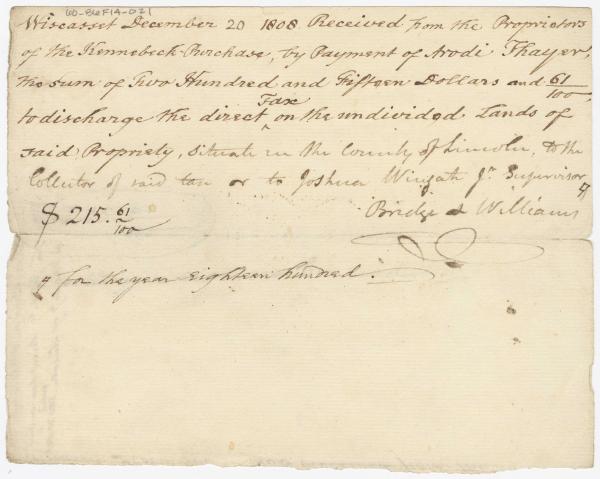 60-86F14-021
Wiscasset December 20 1808 Received from the Proprietors
of the Kennebeck-Purchase, by Payment of Arodi Thayer,
the sum of Two Hundred and Fifteen Dollars and 61/100
to discharge the direct ^ Tax on the undivided Lands of
said Propriety, situate in the County of Lincoln, to the
Collector of said tax or to Joshua Wingate Jr Supervisor
Bridge & Williams
$ 215.61/100
for the year eighteen hundred.